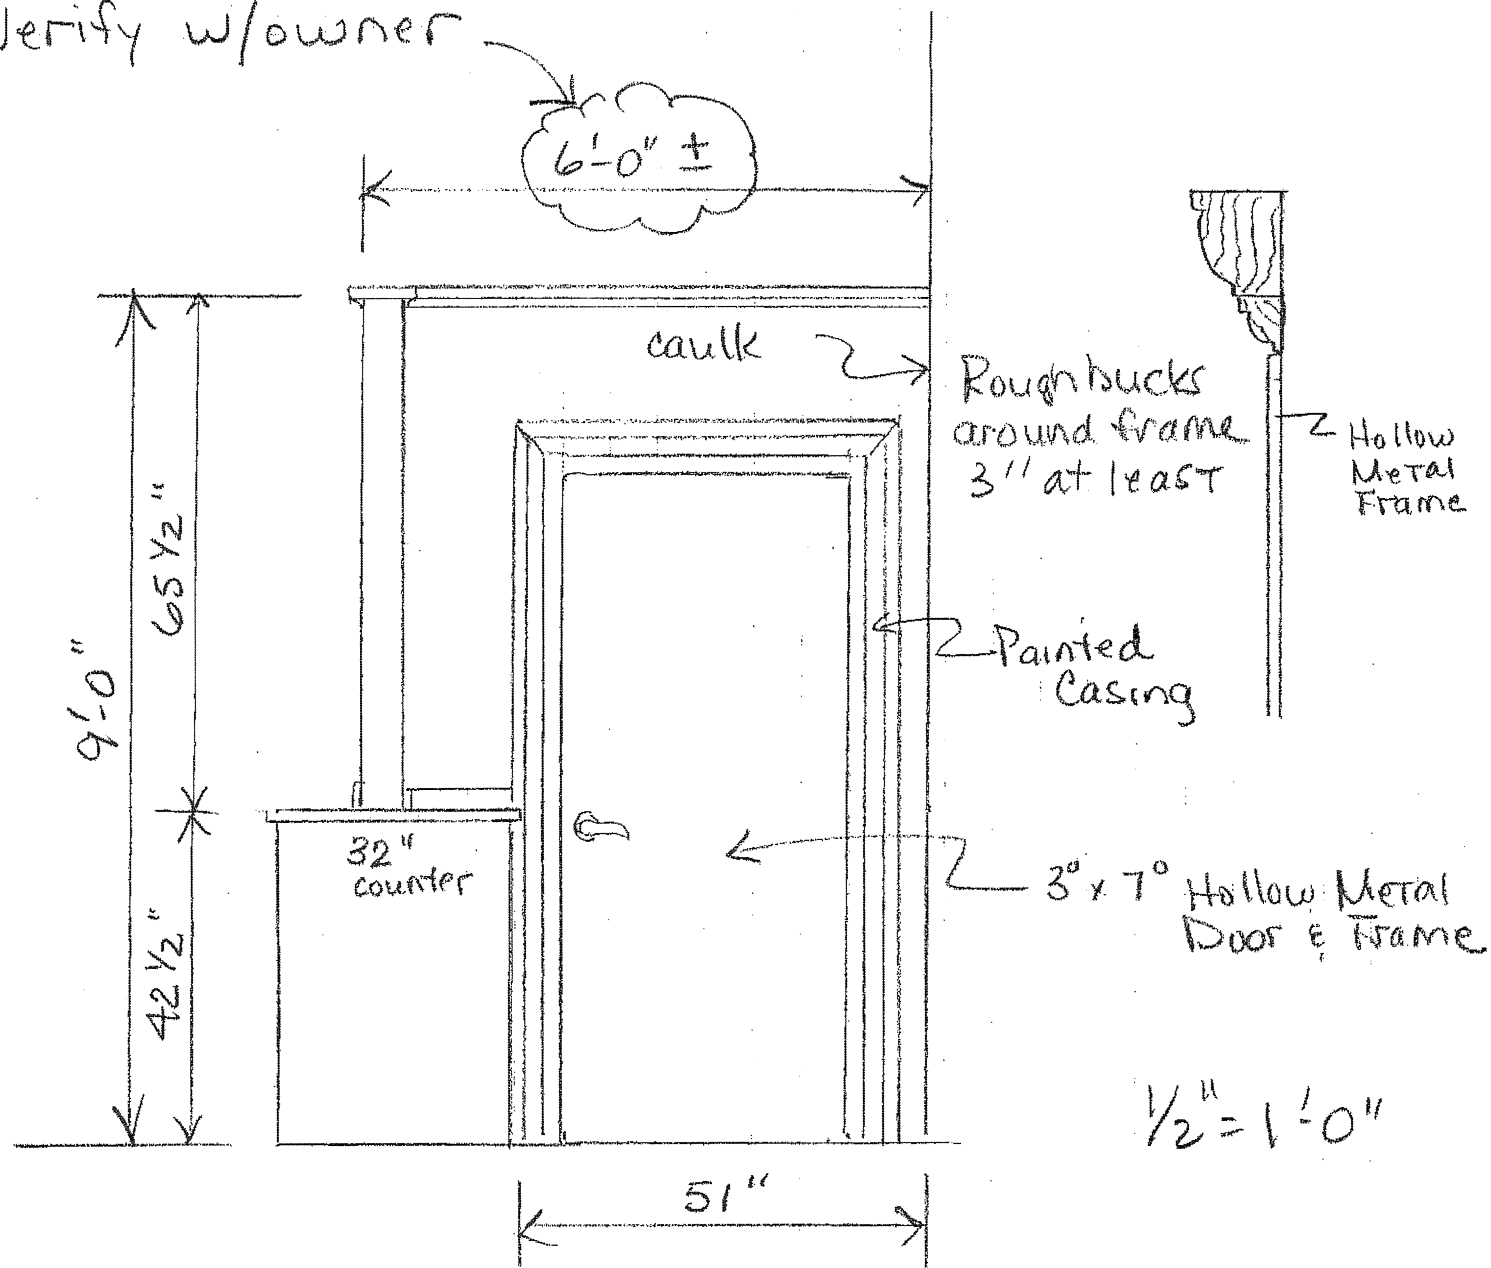 Verify w/owner
6'-0" ±
caulk
Rough bucks
around frame
3" at least
Hollow
Metal
Frame
65 1/2"
9'-0"
Painted
Casing
32"
counter
3⁰ x 7⁰ Hollow Metal
Door & Frame
42 1/2"
1/2" = 1'-0"
51"